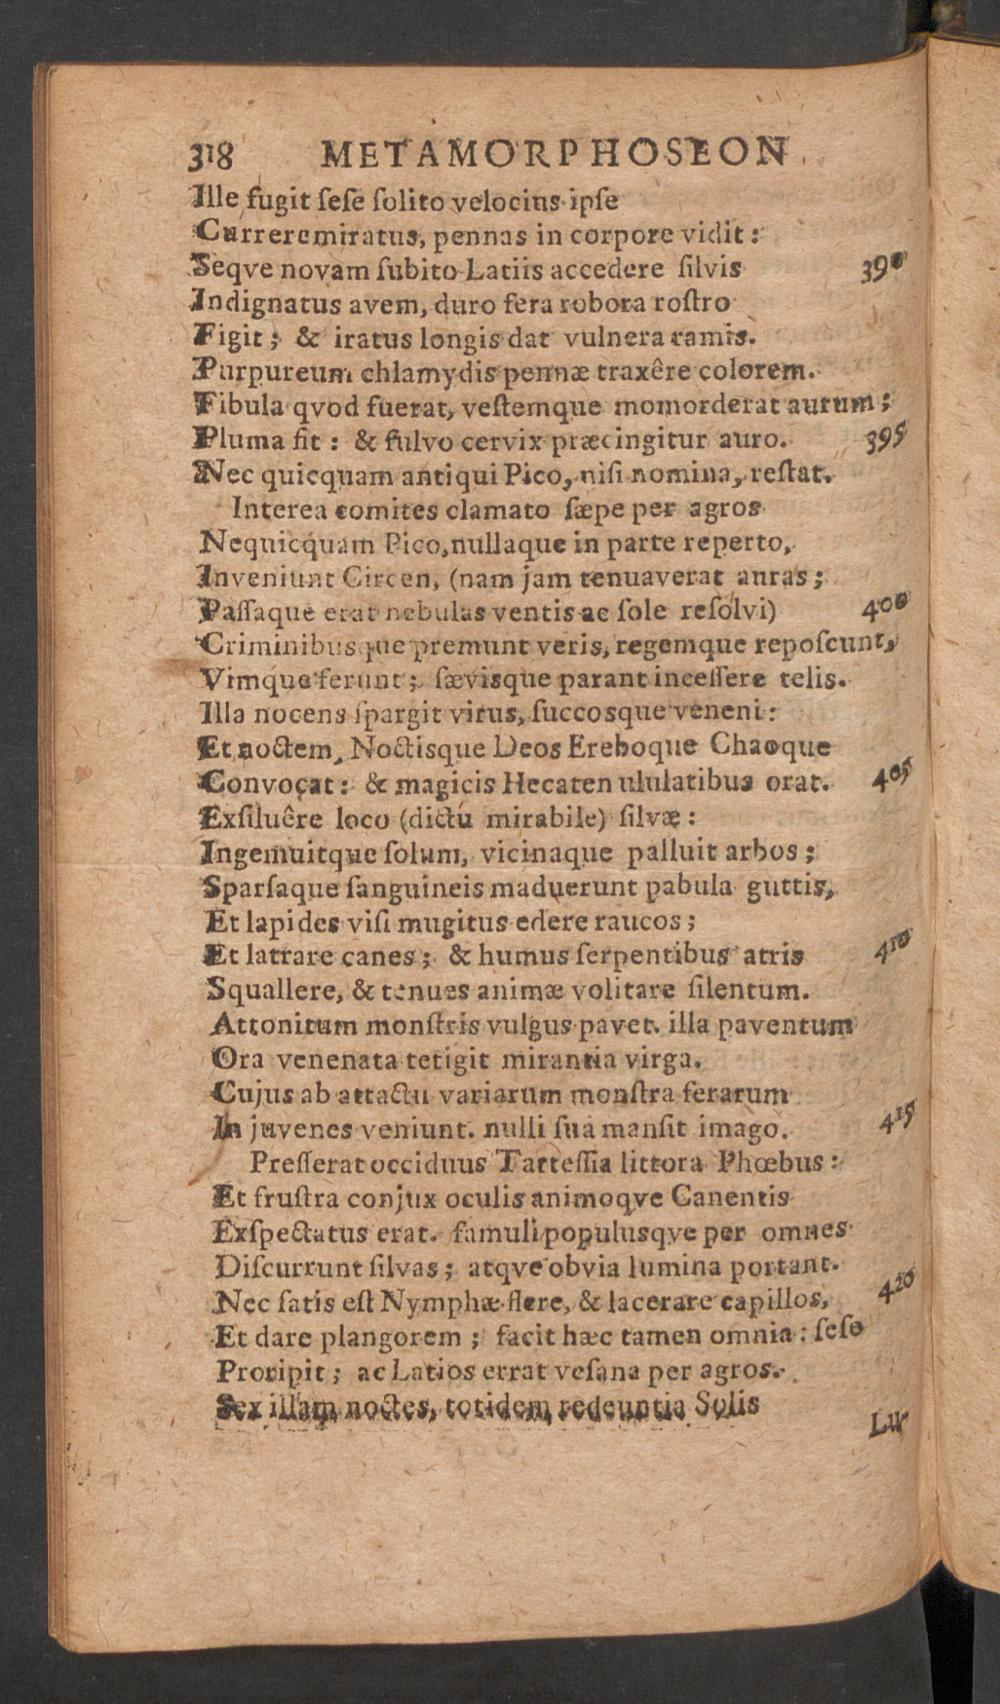 318 METAMORPHOSEON
Ille fugit ſeſe ſolito velocius ipſe
Curreremiratus, pennas in corpore vidit:
Seqve novam ſubito Latiis accedere ſilvis 390
Indignatus avem, duro fera robora roſtro
Figit; & iratus longis dat vulnera ramis.
Purpureum chlamydis pennæ traxêre colorem.
Fibula qvod fuerat, veſtemque momorderat aurum;
Pluma fit: & fulvo cervix præcingitur auro. 395
Nec quicquam antiqui Pico, niſi nomina, reſtat.
Interea comites clamato ſæpe per agros
Nequicquam Pico, nullaque in parte reperto,
Inveniunt Circen, (nam jam tenuaverat auras;
Paſſaque erat nebulas ventis ac ſole reſolvi) 400
Criminibusque premunt veris, regemque repoſcunt,
Vimque ferunt; ſævisque parant inceſſere telis.
Illa nocens ſpargit virus, ſuccosque veneni:
Et noctem, Noctisque Deos Ereboque Chaoque
Convocat: & magicis Hecaten ululatibus orat. 405
Exſiluêre loco (dictu mirabile) ſilvæ:
Ingemuitque ſolum, vicinaque palluit arbos;
Sparſaque ſanguineis maduerunt pabula guttis,
Et lapides viſi mugitus edere raucos;
Et latrare canes; & humus ſerpentibus atris 410
Squallere, & tenues animæ volitare ſilentum.
Attonitum monſtris vulgus pavet. illa paventum
Ora venenata tetigit mirantia virga.
Cujus ab attactu variarum monſtra ferarum
In juvenes veniunt. nulli ſua manſit imago. 415
Preſſerat occiduus Tarteſſia littora Phœbus:
Et fruſtra conjux oculis animoqve Canentis
Exſpectatus erat. famuli populusqve per omnes
Diſcurrunt ſilvas; atqve obvia lumina portant.
Nec ſatis eſt Nymphæ flere, & lacerare capillos, 420
Et dare plangorem; facit hæc tamen omnia: ſeſe
Proripit; ac Latios errat veſana per agros.
Sex illam noctes, totidem redeuntia Solis
Lu-